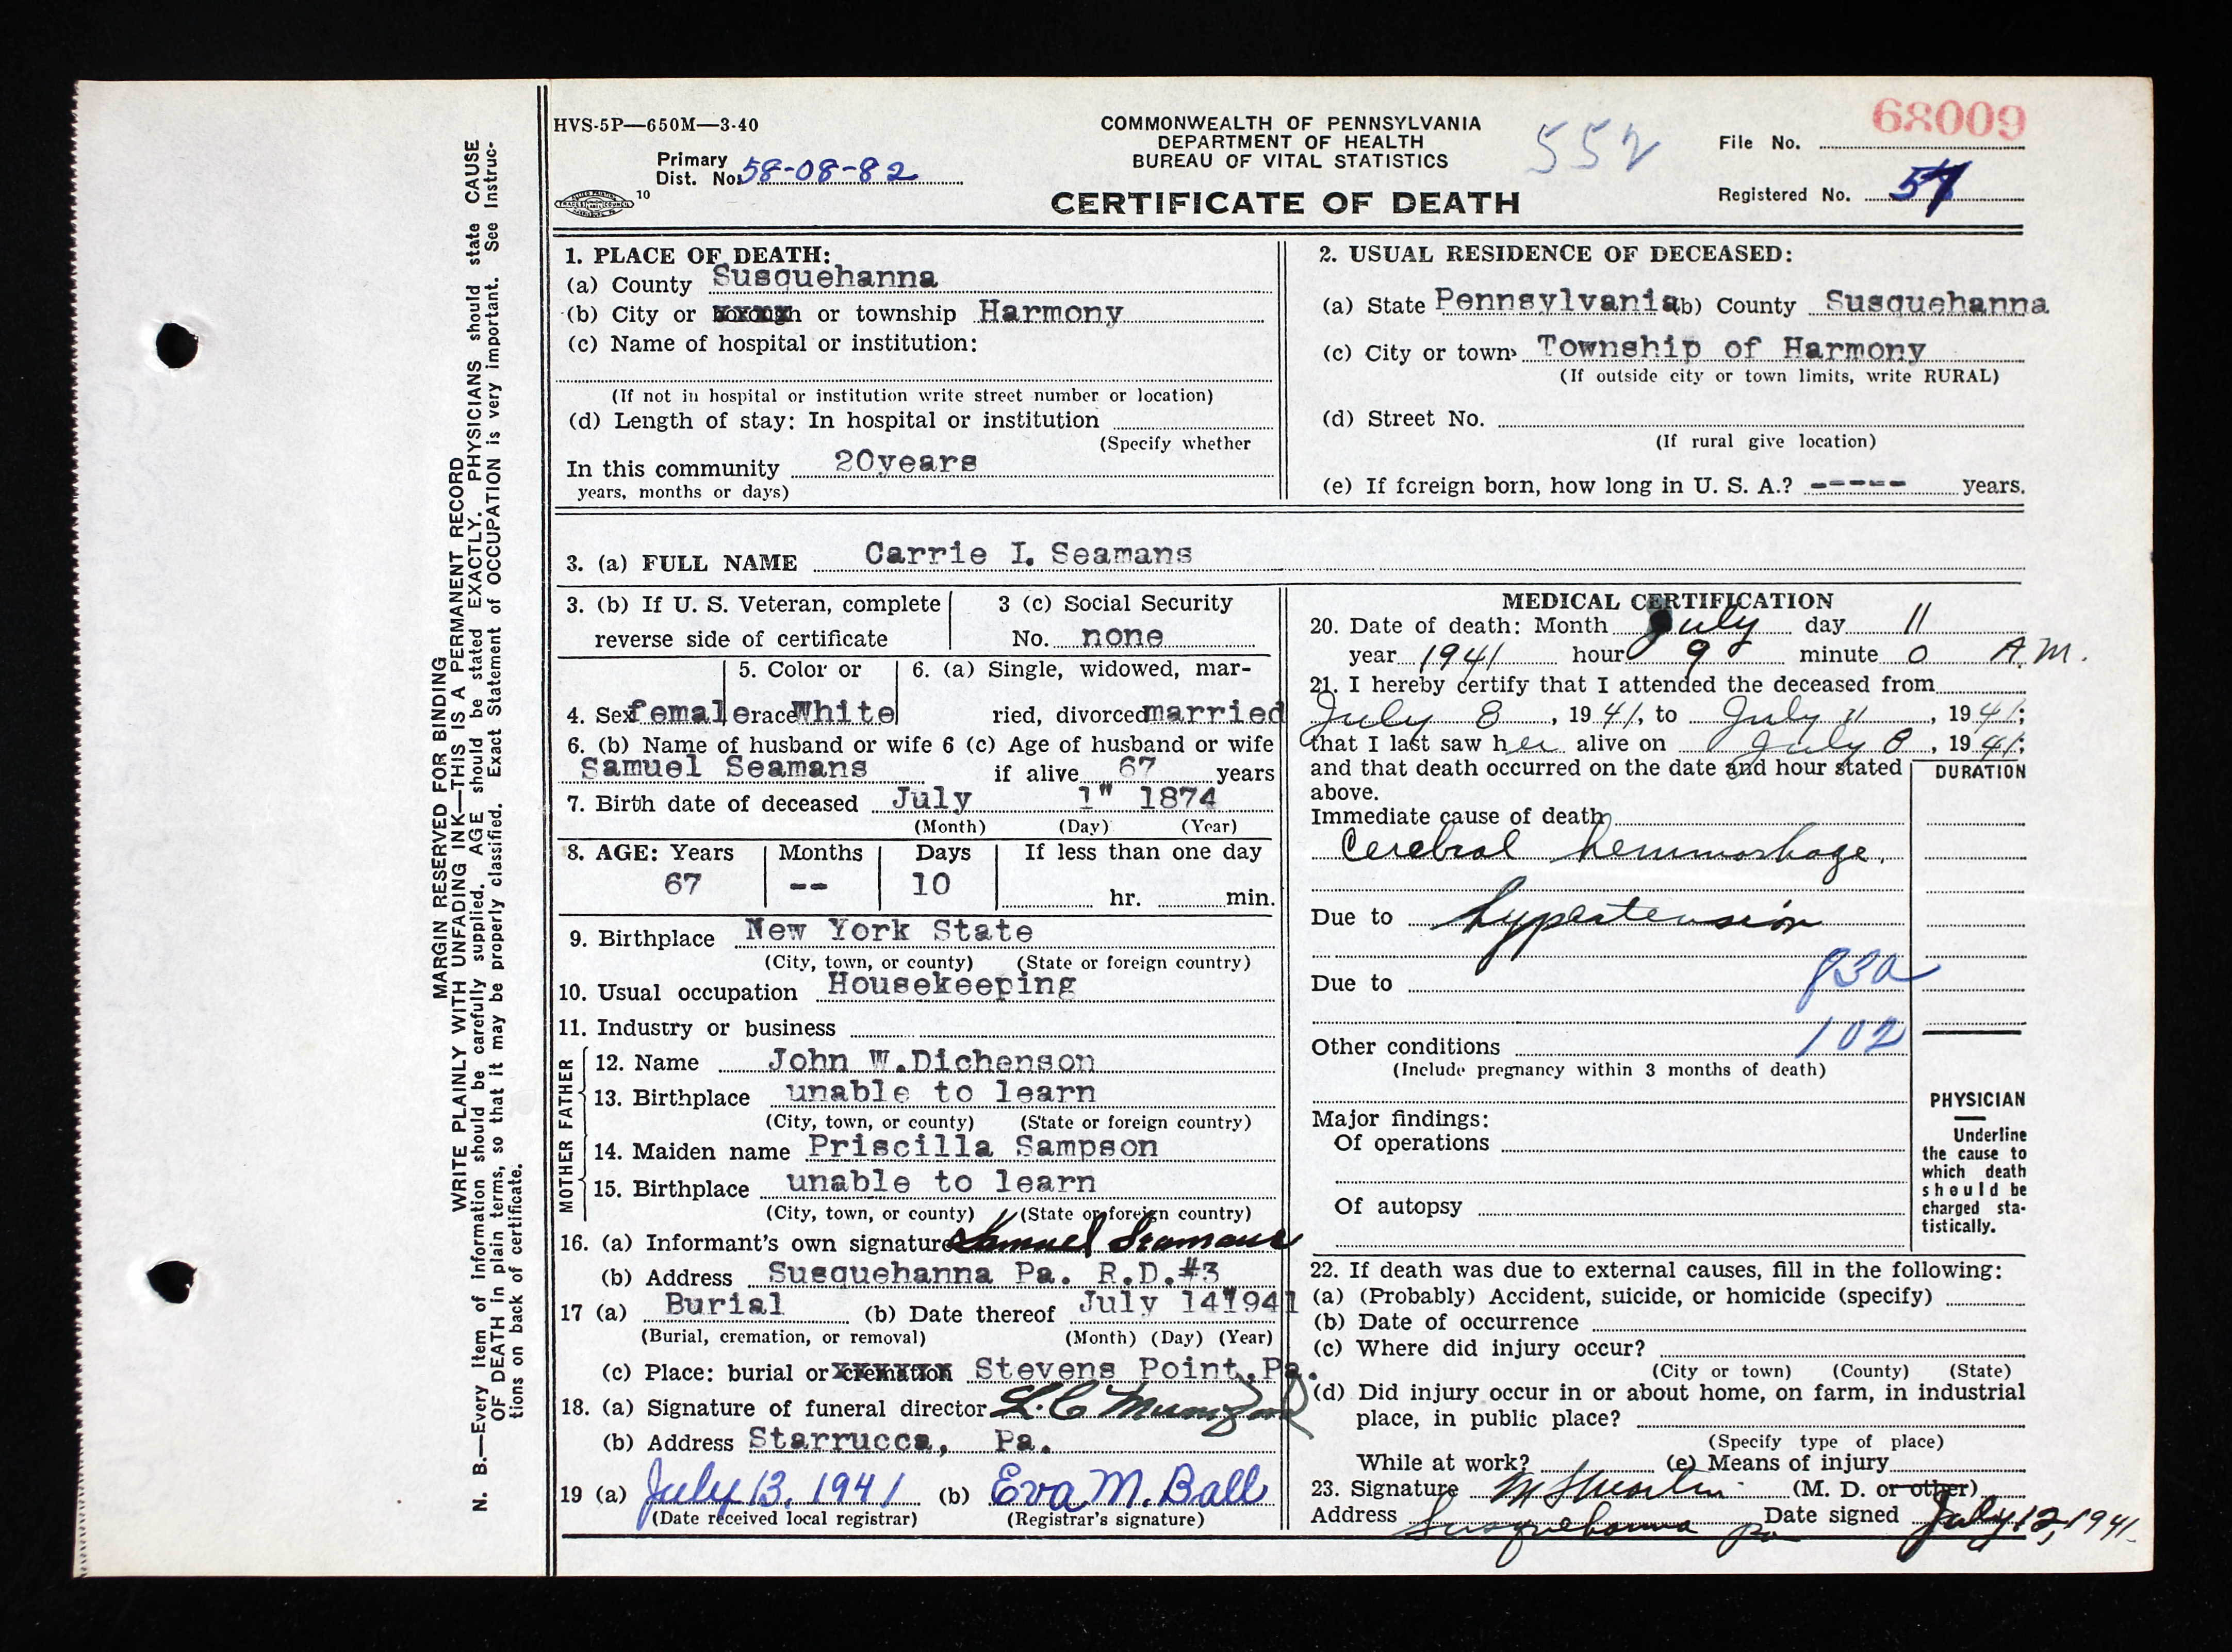 HVS-5P—650M—3-40
COMMONWEALTH OF PENNSYLVANIA
DEPARTMENT OF HEALTH
BUREAU OF VITAL STATISTICS
CERTIFICATE OF DEATH
552
68009
File No.
Registered No. 57
Primary
Dist. No. 58-08-82
10
1. PLACE OF DEATH:
(a) County Susquehanna
(b) City or borough or township Harmony
(c) Name of hospital or institution:
(If not in hospital or institution write street number or location)
(d) Length of stay: In hospital or institution
(Specify whether
In this community 20years
years, months or days)
2. USUAL RESIDENCE OF DECEASED:
(a) State Pennsylvania (b) County Susquehanna
(c) City or town Township of Harmony
(If outside city or town limits, write RURAL)
(d) Street No.
(If rural give location)
(e) If foreign born, how long in U. S. A.? ----- years.
3. (a) FULL NAME Carrie I. Seamans
3. (b) If U. S. Veteran, complete
reverse side of certificate
3 (c) Social Security
No. none
4. Sex female
5. Color or
race White
6. (a) Single, widowed, mar-
ried, divorced married
6. (b) Name of husband or wife
Samuel Seamans
6 (c) Age of husband or wife
if alive 67 years
7. Birth date of deceased July 1" 1874
(Month) (Day) (Year)
8. AGE: Years Months Days If less than one day
67 -- 10 hr. min.
9. Birthplace New York State
(City, town, or county) (State or foreign country)
10. Usual occupation Housekeeping
11. Industry or business
FATHER
12. Name John W.Dichenson
13. Birthplace unable to learn
(City, town, or county) (State or foreign country)
MOTHER
14. Maiden name Priscilla Sampson
15. Birthplace unable to learn
(City, town, or county) (State or foreign country)
16. (a) Informant's own signature Samuel Seamans
(b) Address Susquehanna Pa. R.D.#3
17 (a) Burial (b) Date thereof July 14"1941
(Burial, cremation, or removal) (Month) (Day) (Year)
(c) Place: burial or cremation Stevens Point,Pa.
18. (a) Signature of funeral director L. C.
(b) Address Starrucca, Pa.
19 (a) July 13, 1941 (b) Eva M. Ball
(Date received local registrar) (Registrar's signature)
MEDICAL CERTIFICATION
20. Date of death: Month July day 11
year 1941 hour 9 minute 0 A.M.
21. I hereby certify that I attended the deceased from
July 8, 1941, to July 11, 1941;
that I last saw her alive on July 8, 1941;
and that death occurred on the date and hour stated
above.
DURATION
Immediate cause of death
Cerebral hemmorhage.
Due to hypertension
83a
Due to
102
Other conditions
(Include pregnancy within 3 months of death)
Major findings:
Of operations
Of autopsy
PHYSICIAN
Underline
the cause to
which death
should be
charged sta-
tistically.
22. If death was due to external causes, fill in the following:
(a) (Probably) Accident, suicide, or homicide (specify)
(b) Date of occurrence
(c) Where did injury occur?
(City or town) (County) (State)
(d) Did injury occur in or about home, on farm, in industrial
place, in public place?
(Specify type of place)
While at work? (e) Means of injury
23. Signature (M. D. or other)
Address Susquehanna Pa Date signed July 12, 1941
MARGIN RESERVED FOR BINDING
WRITE PLAINLY WITH UNFADING INK—THIS IS A PERMANENT RECORD
N. B.—Every item of information should be carefully supplied. AGE should be stated EXACTLY. PHYSICIANS should state CAUSE
OF DEATH in plain terms, so that it may be properly classified. Exact Statement of OCCUPATION is very important. See Instruc-
tions on back of certificate.